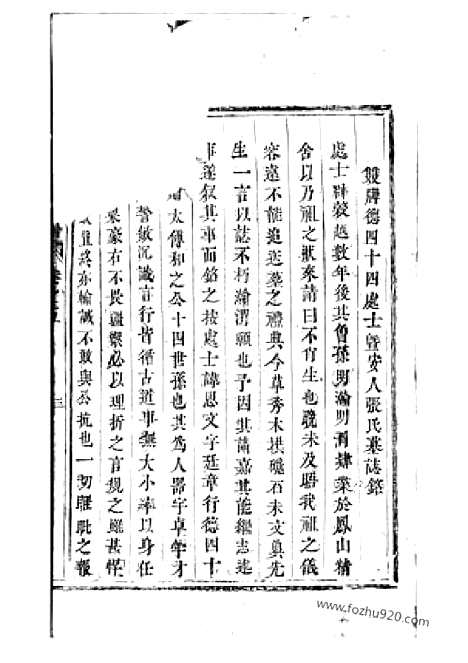 雙牌德四十四處士暨安人張氏墓誌銘
處士歸窆越數年後其曾孫男瀚男淵肄業於鳳山精
舍以乃祖之狀來請曰不肖生也晚未及睹我祖之儀
容遠不能追送墓之禮典今草秀木拱碣石未文奠先
生一言以誌不朽瀚淵願也予因其請嘉其能繼志述
事遂叙其事而銘之按處士諱思文字廷章行德四十
太傅和之公十四世孫也其為人器宇卓犖才
警敏沉識言行皆循古道事無大小率以身任
梁豪右不畏疆禦必以理折之言規之雖甚悍
終亦輸誠不敢與公抗也一切睚眥之報
三
www.fozhu920.com